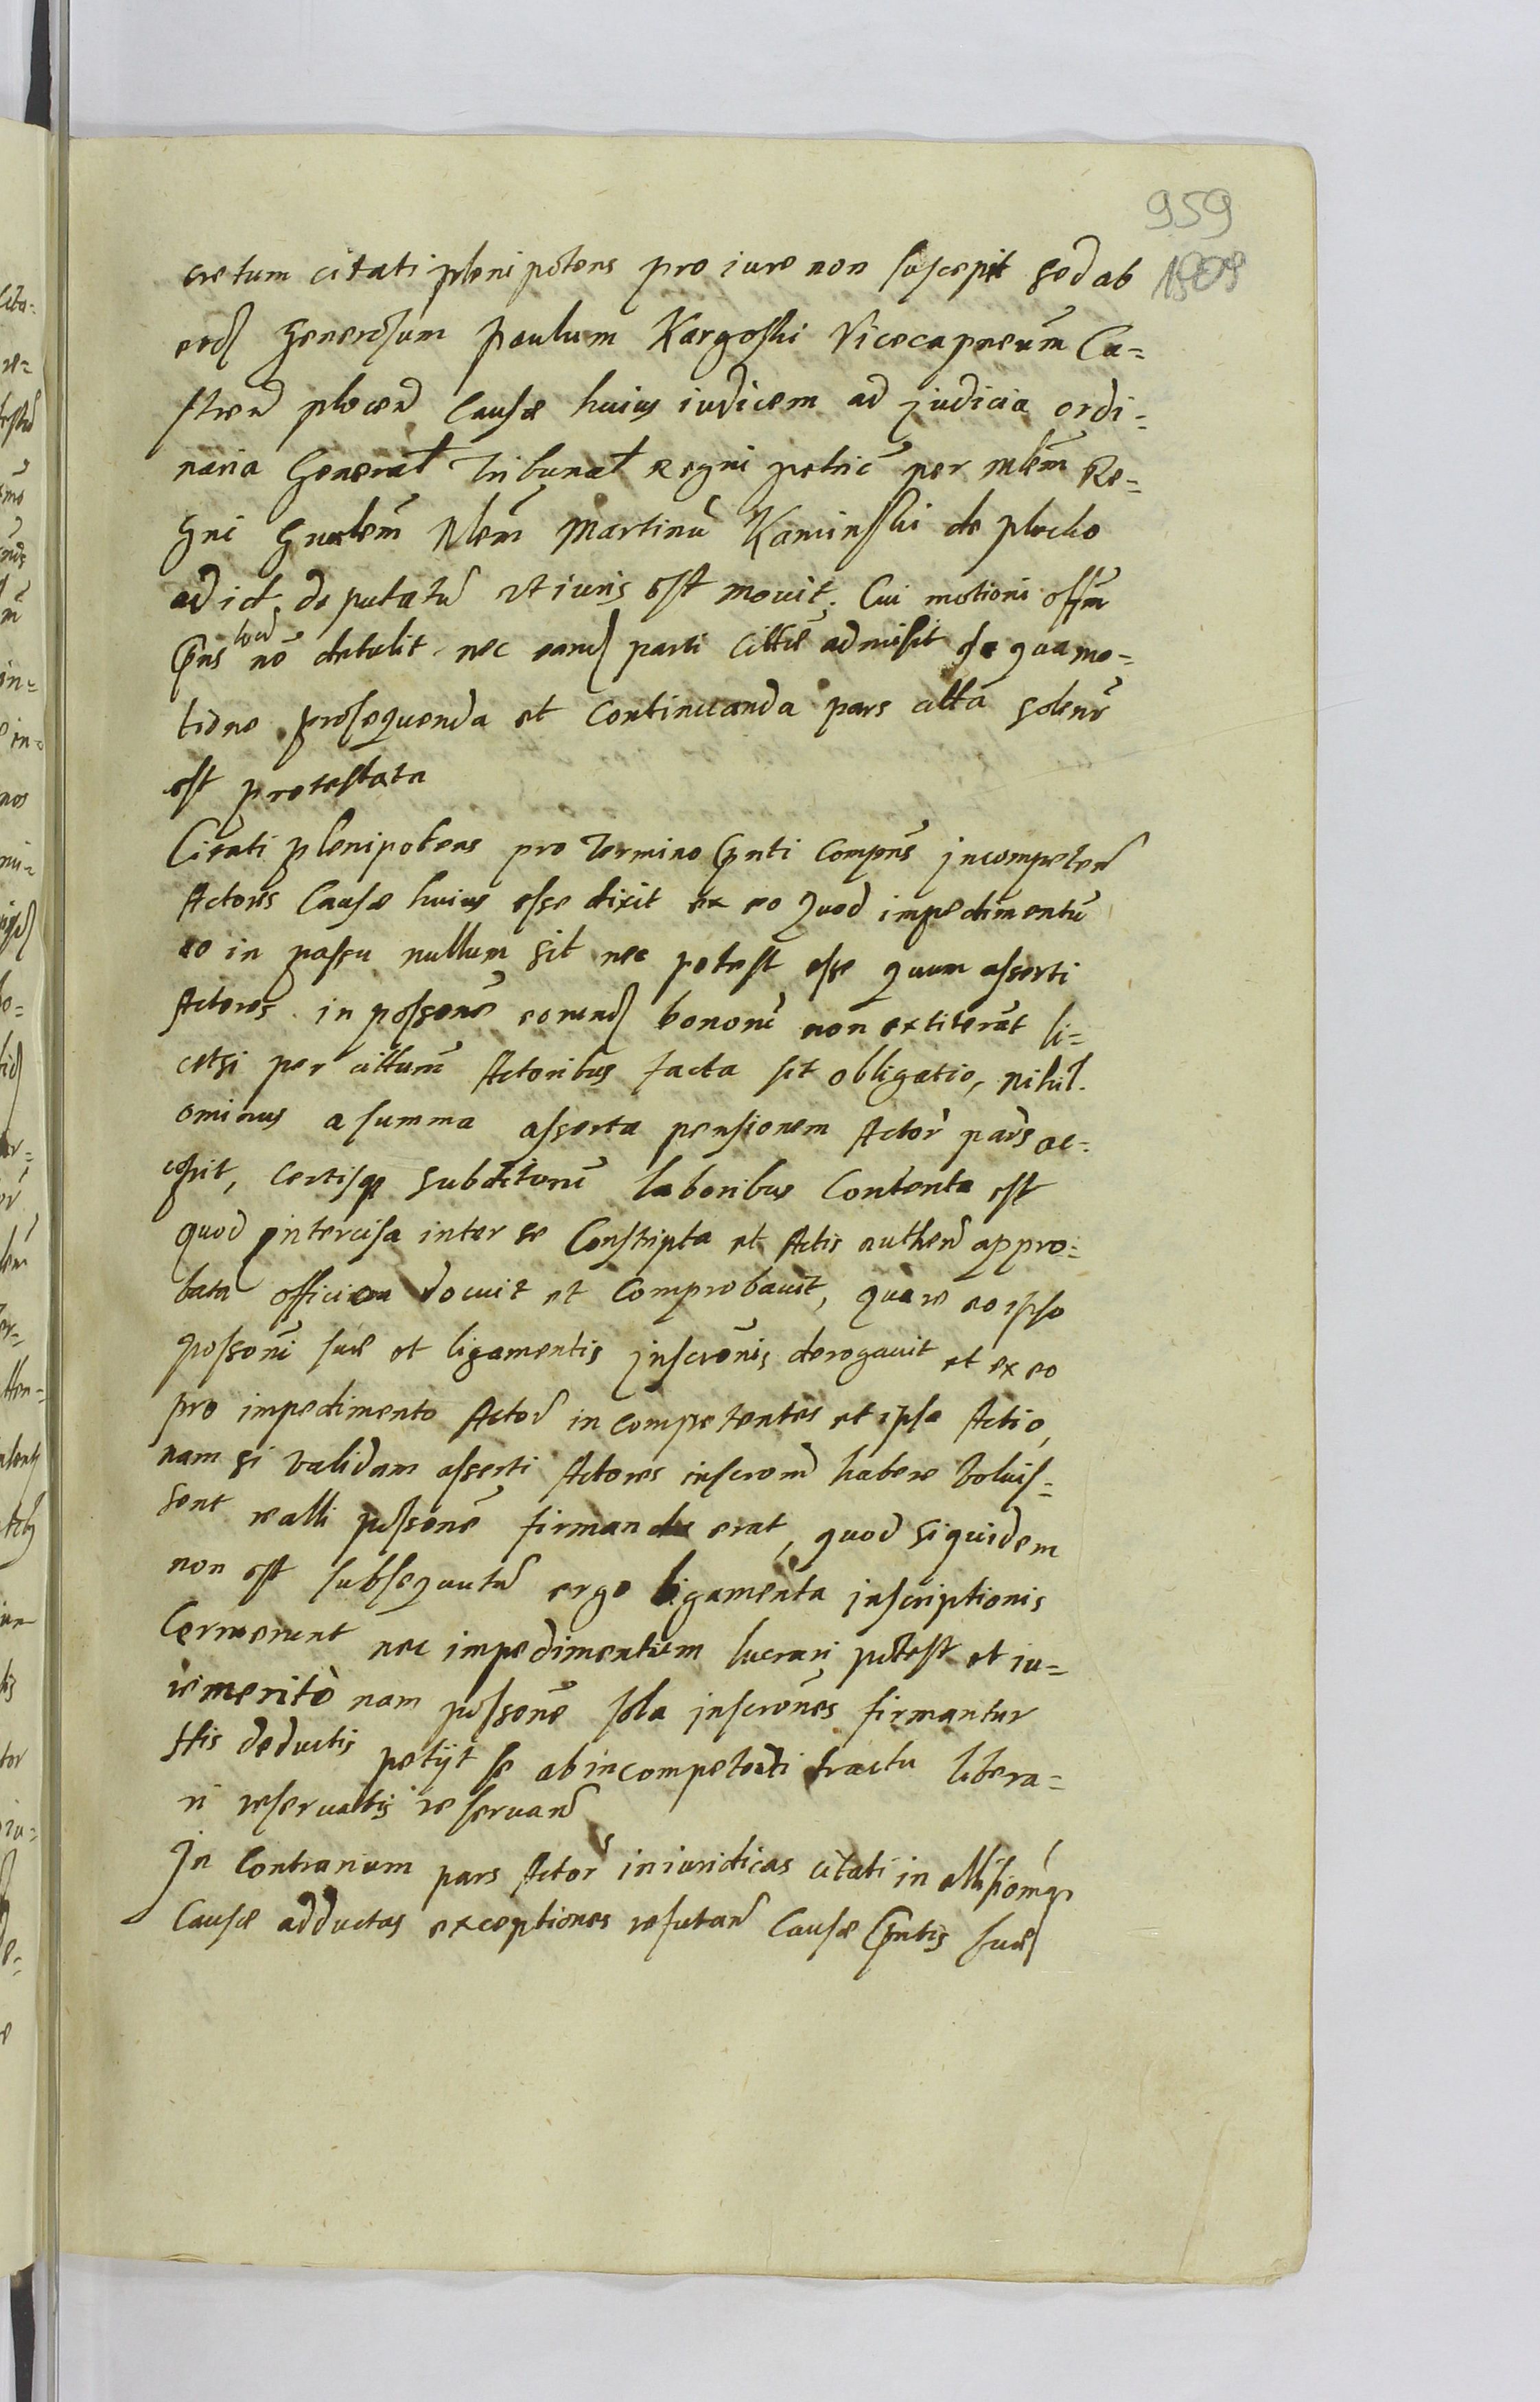 959
1808
cretum citati plenipotens pro iure non suscepit sed ab
eod Generosum Paulum Kargoski Vicecapneum Ca=
stren plocen Causæ huius iudicem ad judicia ordi=
naria General Tribunal Regni petric per mlem Re=
gni Gnalem Nlem Martinu Kaminski de plocko
ad id deputatu ut iuris est mouit. Cui motioni offm
pns locu no detulit nec eand parti cittæ admisit de qua mo=
tione prosequenda et continuanda pars citta solenr
est protestata
Citati plenipotens pro termino pnti compns jncompeten
Actores Causæ huius esse dixit ex eo quod impedimentu
eo in passu nullum sit nec potest esse quum asserti
Actores in possone eorund bonoru non extiterat li=
cetsi per cittum Actoribus facta sit obligatio, nihil
ominus a summa asserta pensionem Actor pars ac=
cepit, certisq subditoru laboribus contenta est
quod intercisa inter se Conscripta et Actis authen appro=
bata officiose docuit et comprobauit, quare eo ipso
possoni suæ et ligamentis jnscronis derogauit et ex eo
pro impedimento Actor incompetentes et ipsa Actio,
nam si validam asserti Actores inscrom habere voluis=
sent realli possone firmanda erat, quod siquidem
non est subsequutu ergo ligamenta jnscriptionis
Corruerunt nec impedimentum lucrari potest et iu=
re meritò nam possone sola jnscrones firmantur
His deductis petijt se ab incompetenti tractu libera=
ri reseruatis reseruan
In Contrarium pars Actor iniuridicas citati in
Causæ adductas exceptiones refutan Causæ pntis suæ